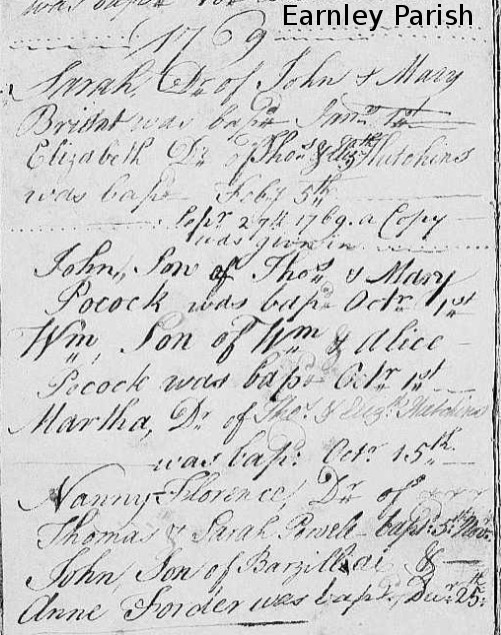 Earnley Parish
was bapd
1769
Sarah, Dr of John & Mary
Bridat was bapd Janry 1st
Elizabeth Dr of Thos & Elizth Hutchins
was bapd Feby 5th
Sepr 27th 1769. a Copy
was given in
John, Son of Thos & Mary
Pocock was bapd Octr 1st
Wm, Son of Wm & Alice
Pocock was bapd Octr 1st
Martha, Dr of Thos & Elizh Hutchins
was bapd: Octr 15th
Nanny Florence, Dr of
Thomas & Sarah Powell bapd: 5th Novr
John, Son of Barzillai &
Anne Forder was bapd, Decr 25th